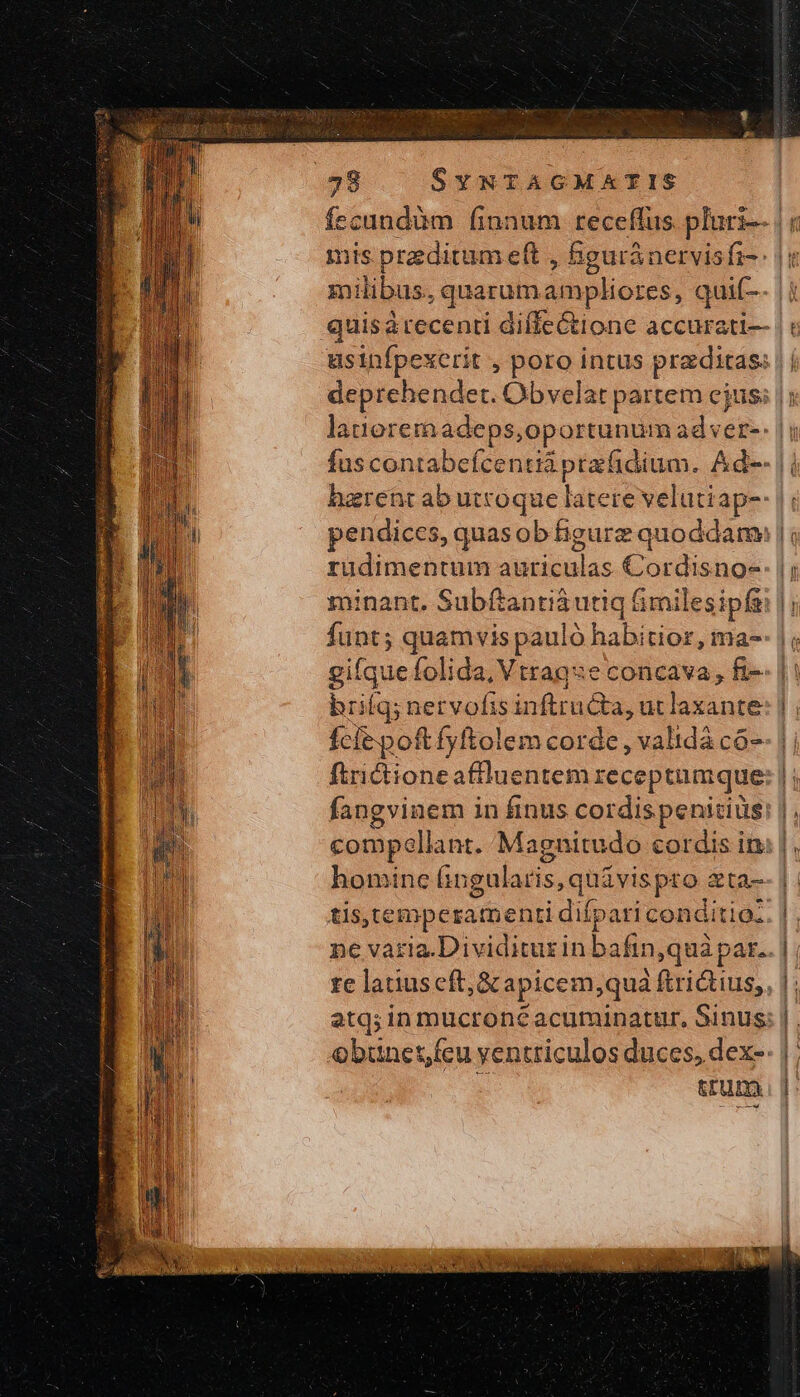 78 SYNTAGMATIS
ſecundùm ſinnum receſſus pluri-
mis præditum eſt, figurâ nervis ſi-
milibus, quarum ampliores, quiſ-
quis à recenti diſſectione accurati-
us inſpexerit, poro intus præditas
deprehendet. Obvelat partem ejus
latiorem adeps, oportunum adver-
ſus contabeſcentiã præſidium. Ad-
hærent ab utroque latere veluti ap-
pendices, quas ob figuræ quoddam
rudimentum auriculas Cordis no-
minant. Subſtantiâ utiq; ſimiles ipſi
ſunt; quamvis paulò habitior, ma-
giſque ſolida, Vtraque concava, fi-
briſq; nervoſis inſtructa, ut laxante
ſeſe poſt ſyſtolem corde, validâ cõ-
ſtrictione affluentem receptumque
ſangvinem in ſinus cordis penitiùs
compellant. Magnitudo cordis in
homine ſingularis, quãvis pro æta-
tis, temperamenti diſpari conditio-
ne varia. Dividitur in baſin, quà par-
te latius eſt, & apicem, quà ſtrictius,
atq; in mucronẽ acuminatur. Sinus
obtinet, ſeu ventriculos duces, dex-
trum